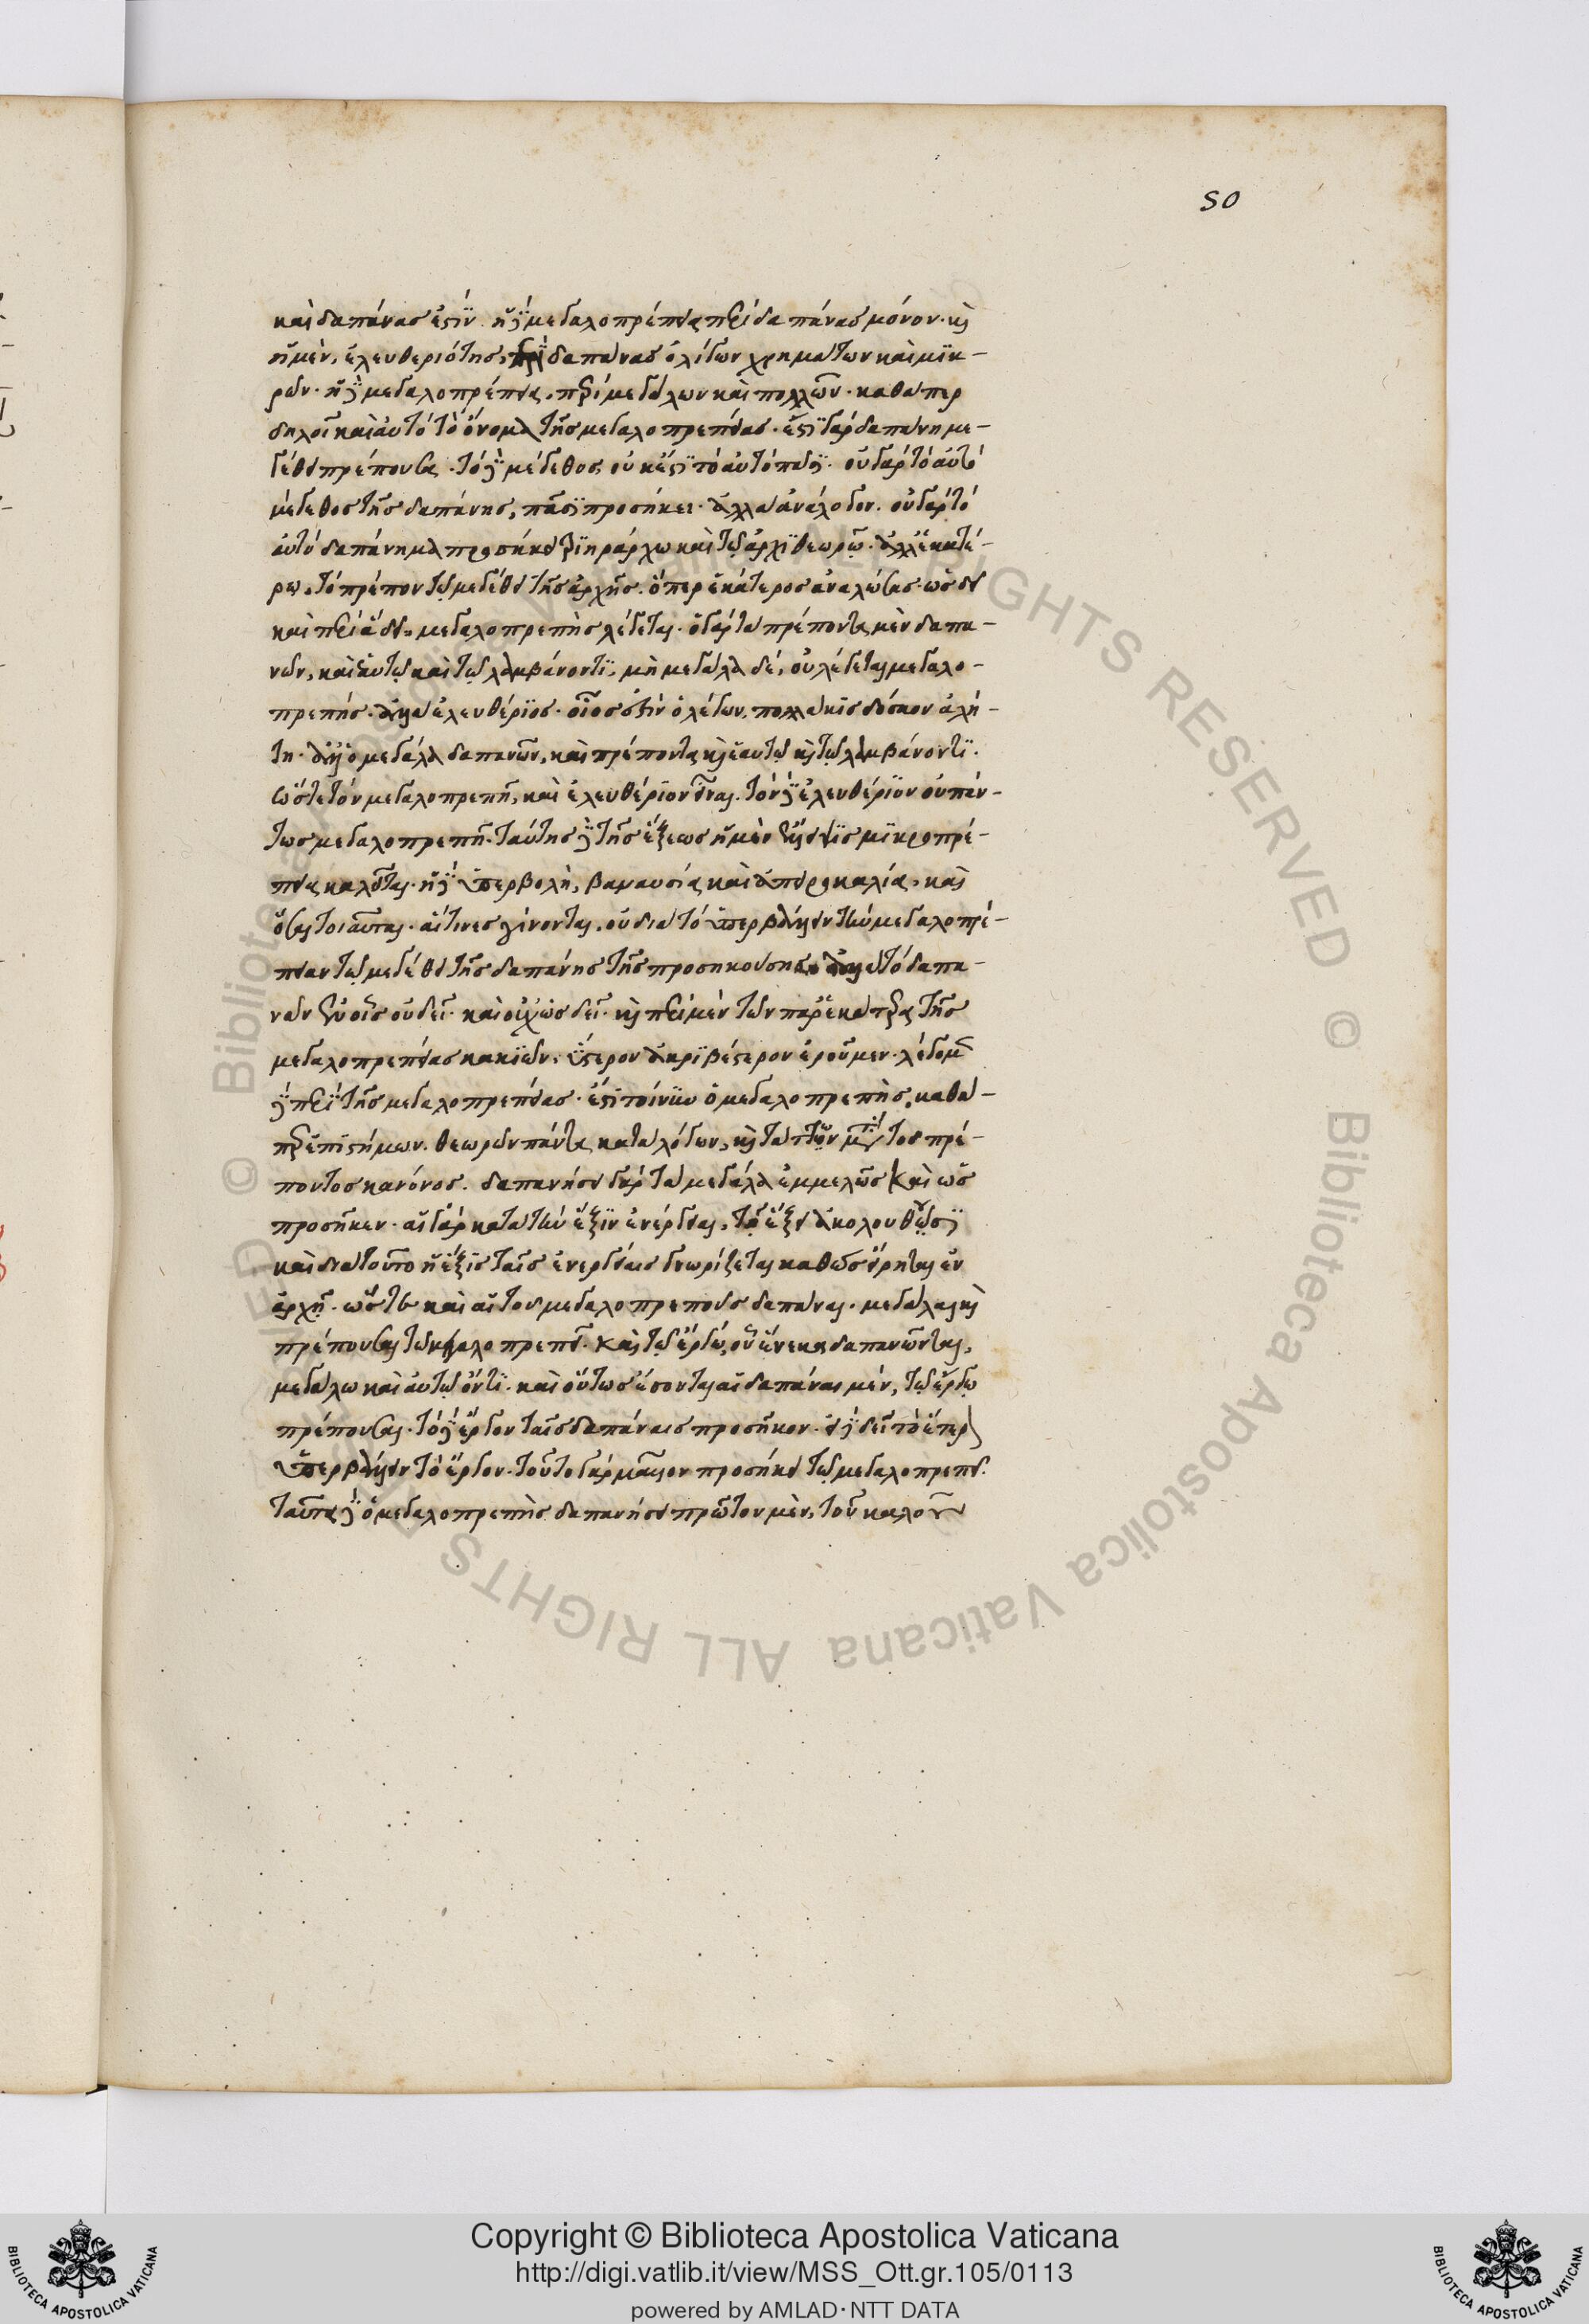 50
καὶ δαπάνας ἐστίν. ἡ δὲ μεγαλοπρέπεια περὶ δαπάνας μόνον. καὶ
ἡ μὲν, ἐλευθεριότης, περὶ δαπάνας ὀλίγων χρημάτων καὶ μικ-
ρῶν. ἡ δὲ μεγαλοπρέπεια, περὶ μεγάλων καὶ πολλῶν. καθάπερ
δηλοῖ καὶ αὐτὸ τὸ ὄνομα τῆς μεγαλοπρεπείας. ἔστι γὰρ δαπάνη με-
γέθει πρέπουσα. τὸ δὲ μέγεθος οὐκ ἔστι τὸ αὐτὸ πᾶσι. οὐ γὰρ τὸ αὐτὸ
μέγεθος τῆς δαπάνης, πᾶσι προσήκει. ἀλλὰ ἀνάλογον. οὐ γὰρ τὸ
αὐτὸ δαπάνημα προσήκει τριηράρχω καὶ τῷ ἀρχιθεωρῷ. ἀλλ' ἑκατέ-
ρω, τὸ πρέπον τῷ μεγέθει τῆς ἀρχῆς. ὅπερ ἑκάτερος ἀναλώσας ὡς δεῖ
καὶ περὶ ἃ δεῖ, μεγαλοπρεπὴς λέγεται. ὁ γὰρ τὰ πρέποντα μὲν δαπα-
νῶν, καὶ ἑαυτῷ καὶ τῷ λαμβάνοντι, μὴ μεγάλα δέ, οὐ λέγεται μεγαλο-
πρεπής. ἀλλὰ ἐλευθέριος. οἷος ἐστὶν ὁ λέγων, πολλάκις δόσκον ἀλή-
τη. ἀλλ' ὁ μεγάλα δαπανῶν, καὶ πρέποντα καὶ ἑαυτῷ καὶ τῷ λαμβάνοντι.
ὥστε τὸν μεγαλοπρεπῆ, καὶ ἐλευθέριον εἶναι. τὸν δὲ ἐλευθέριον οὐ πάν-
τως μεγαλοπρεπῆ. ταύτης δὲ τῆς ἕξεως ἡ μὲν ἔλλειψις μικροπρέ-
πεια καλεῖται. ἡ δὲ ὑπερβολὴ, βαναυσία καὶ ἀπειροκαλία, καὶ
ὅσαι τοιαῦται. αἵτινες γίνονται, οὐ διὰ τὸ ὑπερβάλλειν τὴν μεγαλοπρέ-
πειαν τῷ μεγέθει τῆς δαπάνης τῆς προσηκούσης, ἀλλὰ τὸ δαπα-
νᾶν ἐν οἷς οὐ δεῖ. καὶ οὐχ ὡς δεῖ. καὶ περὶ μὲν τῶν παρ' ἑκάτερα τῆς
μεγαλοπρεπείας κακιῶν, ὕστερον ἀκριβέστερον ἐροῦμεν. λέγομεν
δὲ περὶ τῆς μεγαλοπρεπείας. ἔστι τοίνυν ὁ μεγαλοπρεπὴς, καθά-
περ ἐπιστήμων. θεωρῶν πάντα κατὰ λόγων, καὶ τάττων μετὰ τοῦ πρέ-
ποντος κανόνος. δαπανήσει γὰρ τὰ μεγάλα ἐμμελῶς καὶ ὡς
προσῆκεν. αἱ γὰρ κατὰ τὴν ἕξιν ἐνέργειαι, τῇ ἕξει ἀκολουθοῦσι
καὶ διὰ τοῦτο ἡ ἕξις ταῖς ἐνεργείαις γνωρίζεται καθὼς εἴρηται ἐν
ἀρχῇ. ὥστε καὶ αἱ τοῦ μεγαλοπρεποῦς δαπάναι. μεγάλαι καὶ
πρέπουσαι τῷ μεγαλοπρεπεῖ. καὶ τῷ ἔργῳ, οὗ ἕνεκα δαπανῶνται,
μεγάλω καὶ αὐτῷ ὄντι. καὶ οὕτως ἔσονται αἱ δαπάναι μὲν, τῷ ἔργῳ
πρέπουσαι. τὸ δὲ ἔργον ταῖς δαπάναις προσῆκον. εἰ δὲ δεῖ τὸ ἕτερον
ὑπερβάλλειν τὸ ἔργον. τοῦτο γὰρ μᾶλλον προσήκει τῷ μεγαλοπρεπεῖ.
ταῦτα δὲ ὁ μεγαλοπρεπὴς δαπανήσει πρῶτον μὲν, τοῦ καλοῦ
Copyright © Biblioteca Apostolica Vaticana
http://digi.vatlib.it/view/MSS_Ott.gr.105/0113
powered by AMLAD·NTT DATA